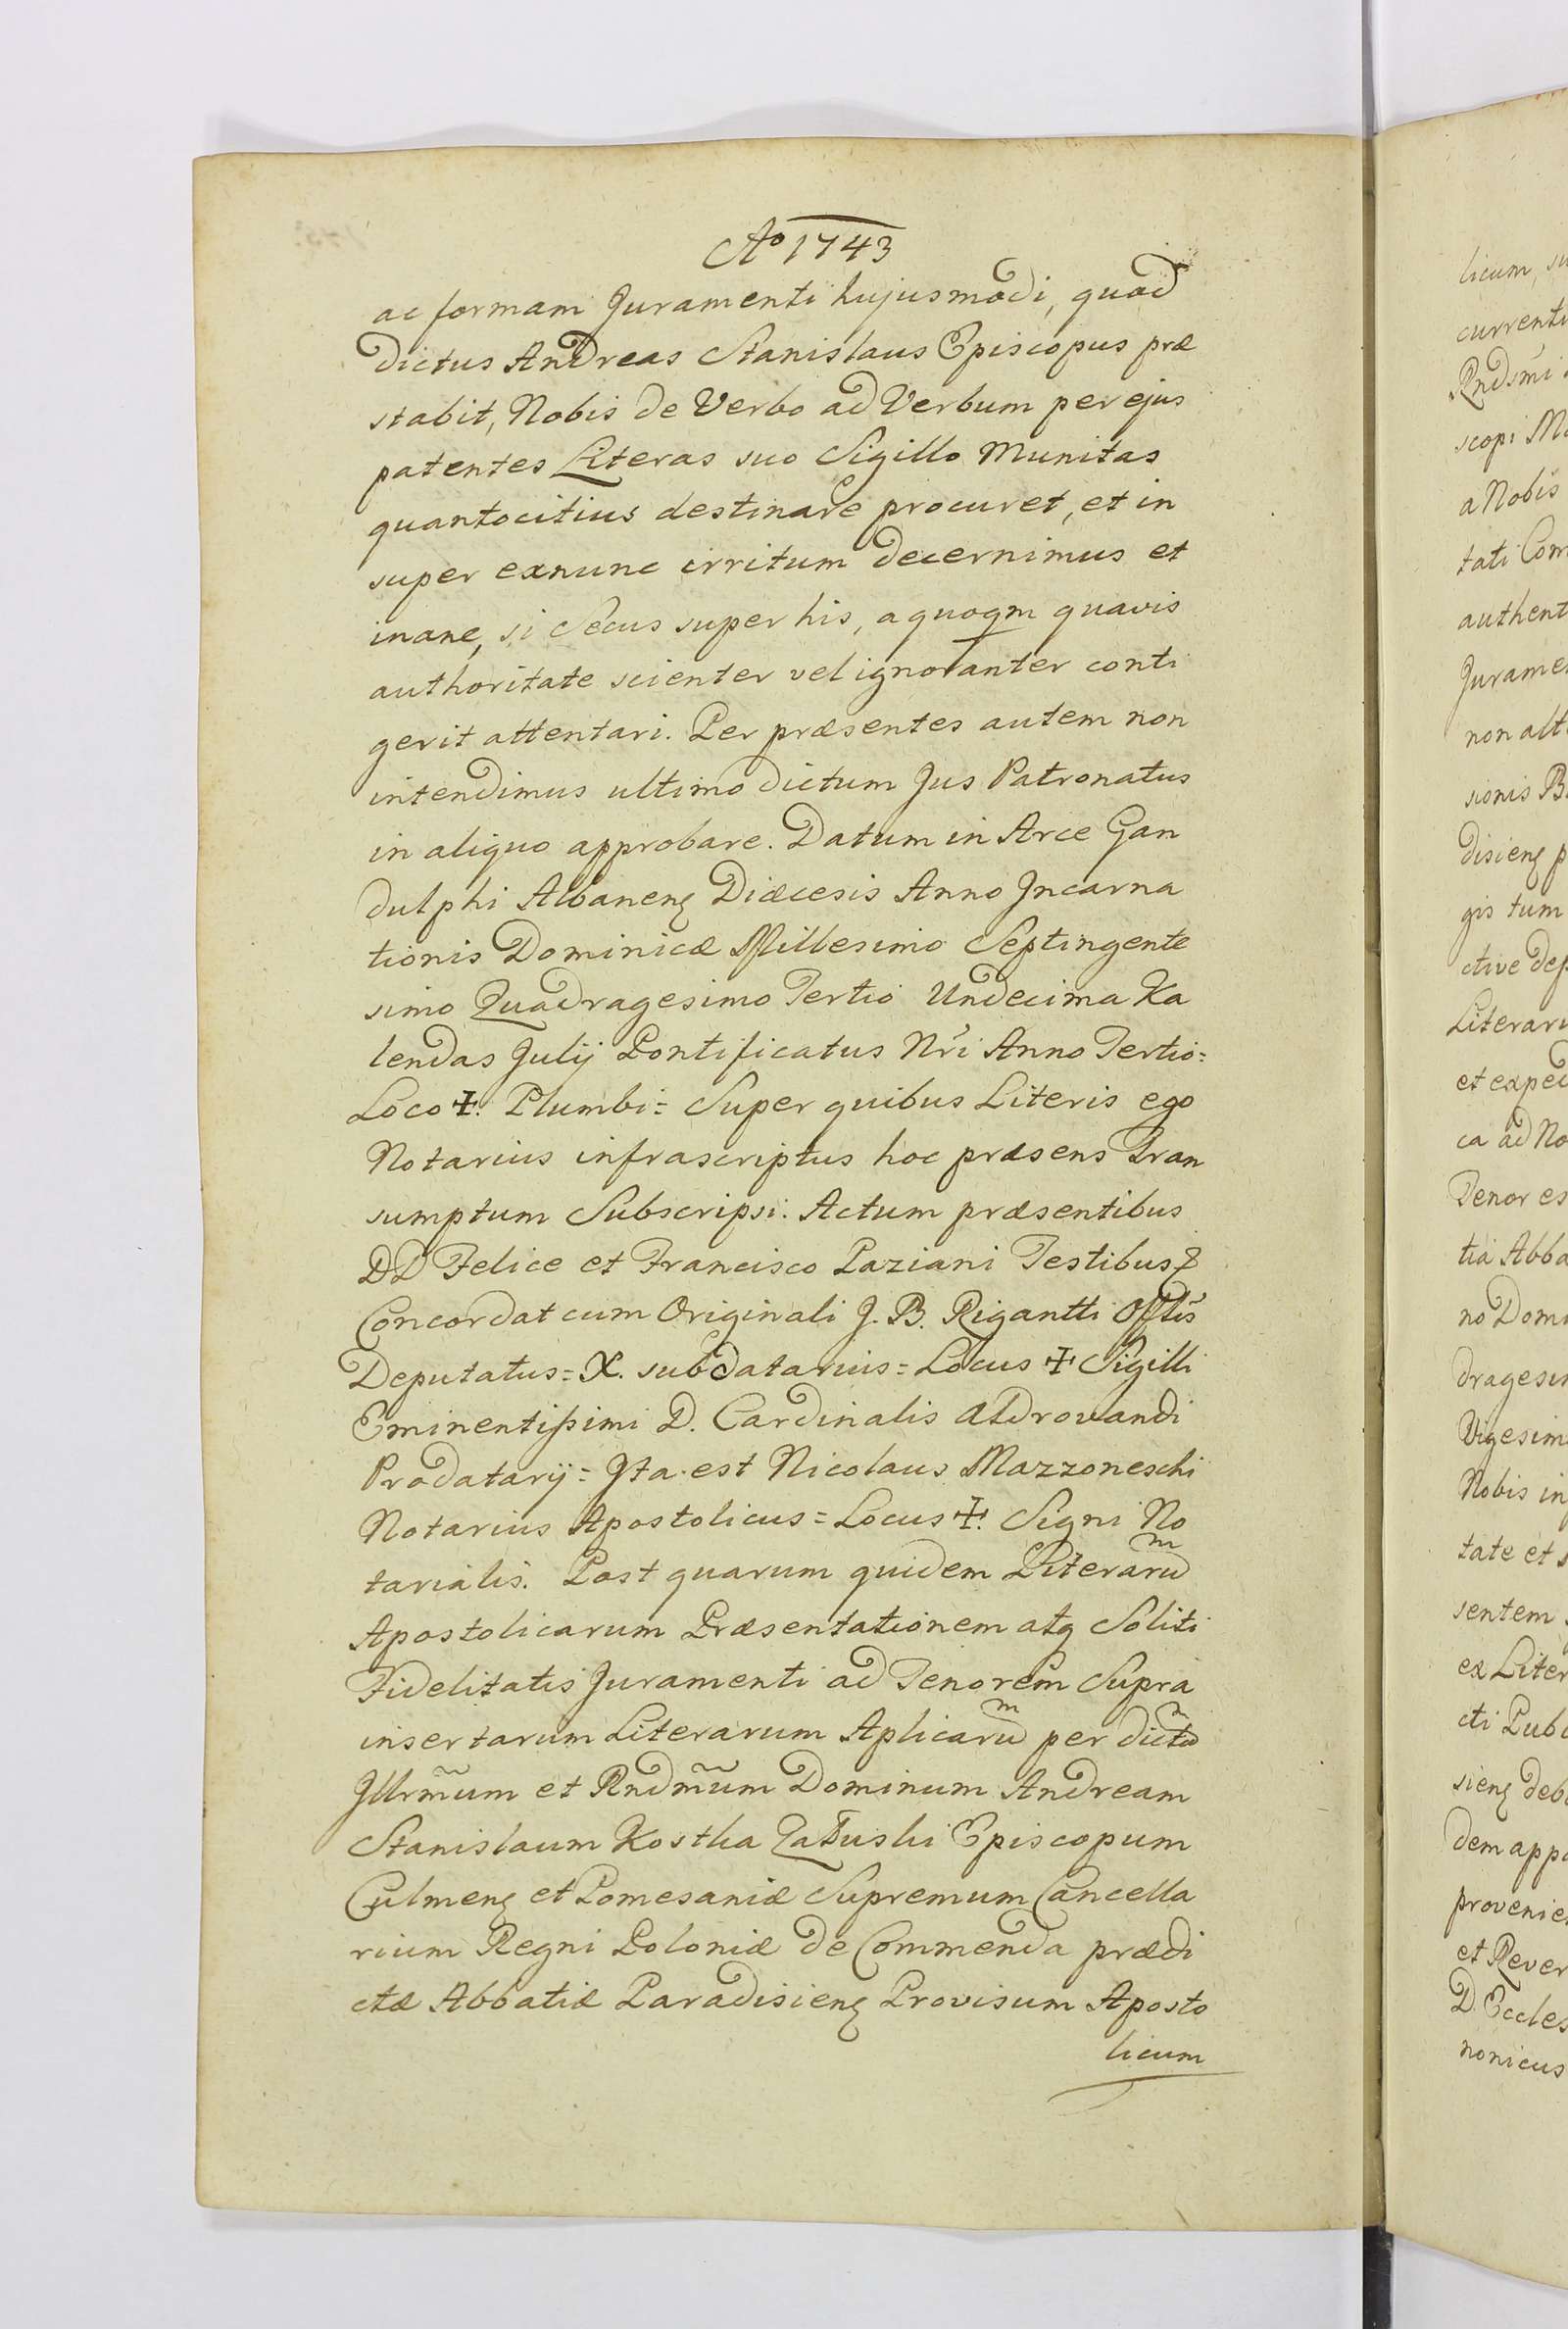 Ao 1743
ac formam Juramenti hujusmodi, quod
dictus Andreas Stanislaus Episcopus præ
stabit, Nobis de Verbo ad Verbum per ejus
patentes Literas suo Sigillo Munitas
quantocitius destinare procuret, et in
super exnunc irritum decernimus et
inane, si Secus super his, a quoqm quavis
authoritate scienter vel ignoranter conti
gerit attentari. Per præsentes autem non
intendimus ultimo dictum Jus Patronatus
in aliquo approbare. Datum in Arce Gan
dulphi Albaneñ Diæcesis Anno Jncarna
tionis Dominicæ Millesimo Septingente
simo Quadragesimo Tertio Undecima Ka
lendas Julij Pontificatus Nri Anno Tertio=
Loco ✠ Plumbi= Super quibus Literis ego
Notarius infrascriptus hoc præsens Tran
sumptum Subscripsi. Actum præsentibus
DD Felice et Francisco Paziani Testibus
Concordat cum Originali J. B. Rigantti Offlis
Deputatus= X. subdatarius= Locus ✠ Sigilli
Eminentissimi D. Cardinalis Aldrovandi
Prodatarij= Jta est Nicolaus Mazzoneschi
Notarius Apostolicus= Locus ✠ Signi No
tarialis. Post quarum quidem Literarum
Apostolicarum Præsentationem atq Soliti
Fidelitatis Juramenti ad Tenorem Supra
insertarum Literarum Aplicarum per dictum
Jllrm̃um et Rndm̃um Dominum Andream
Stanislaum Kostka Załuski Episcopum
Culmeñ et Pomesaniæ Supremum Cancella
rium Regni Poloniæ de Commenda prædi
ctæ Abbatiæ Paradisieñ Provisum Aposto
licum
licum, su
currenti
Rndsmi
scopi
a Nobis
tati Com
authent
Jurame
non alt
sionis
disieñ p
gis tum
ctive dep
Literaru
et exped
ca ad No
Tenor es
tia Abba
no Domi
dragesim
Vigesim
Nobis in
tate et s
sentem
ex Liter
cti Publ
sieñ deb
dem app
provenie
et Rever
D. Eccles
nonicus